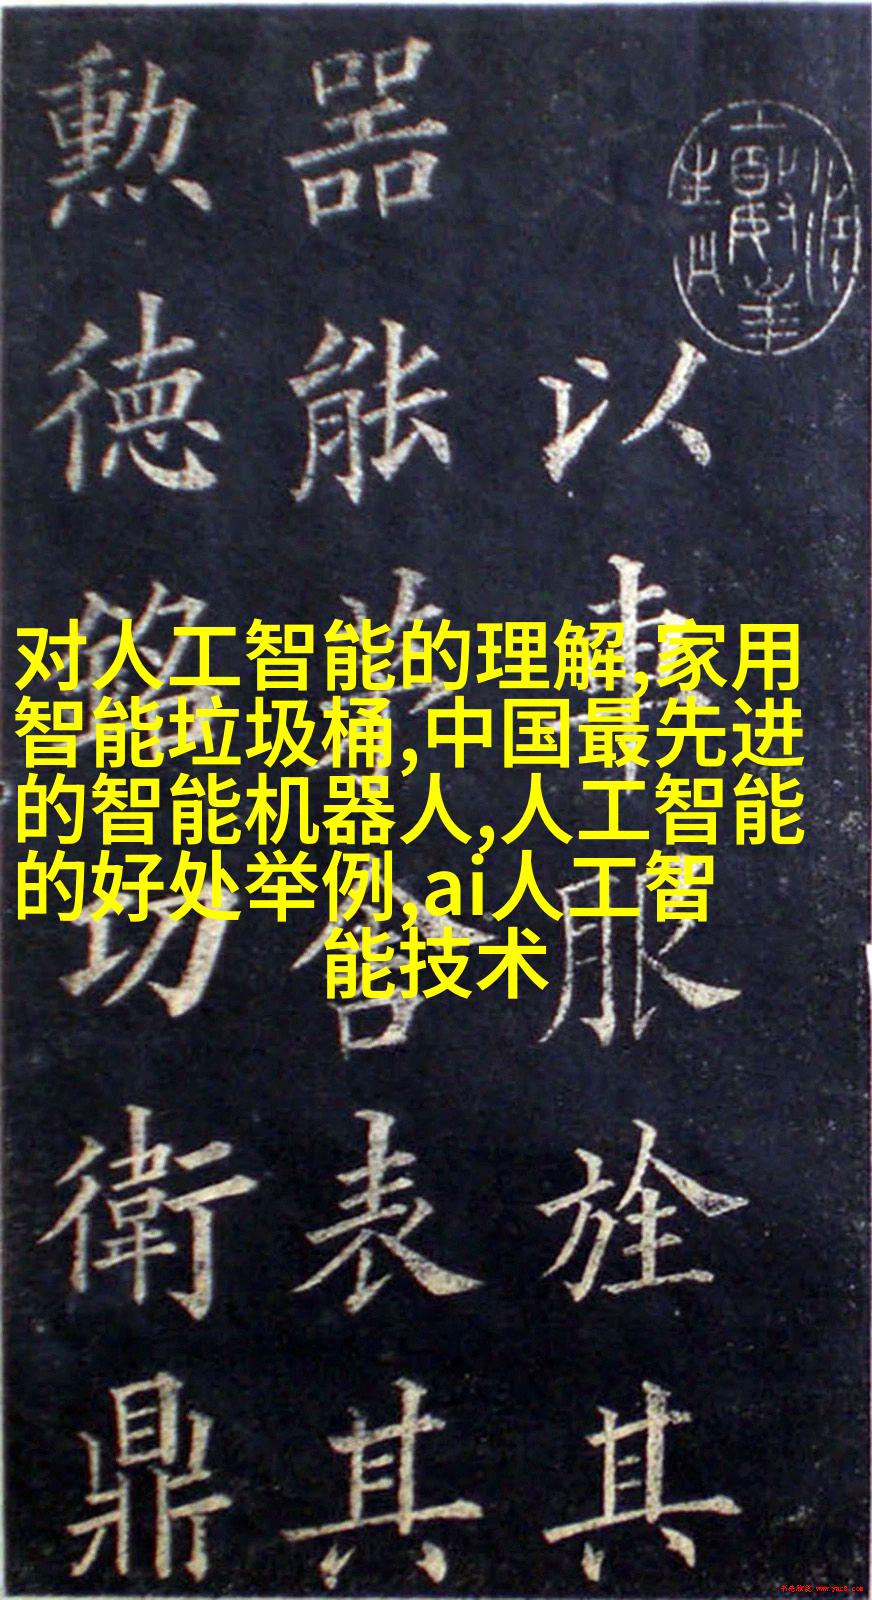 对人工智能的理解,家用
智能垃圾桶,中国最先进
的智能机器人,人工智能
的好处举例,ai人工智
能技术
以車服旌其
器能合表其
勲德銘功衛鼎
www.yac8.com